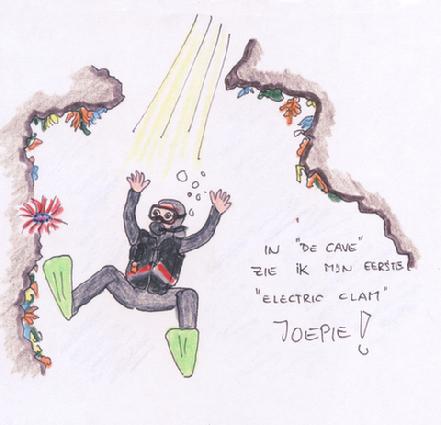 IN "DE CAVE"
ZIE IK MIJN EERSTE
"ELECTRIC CLAM"
JOEPIE!